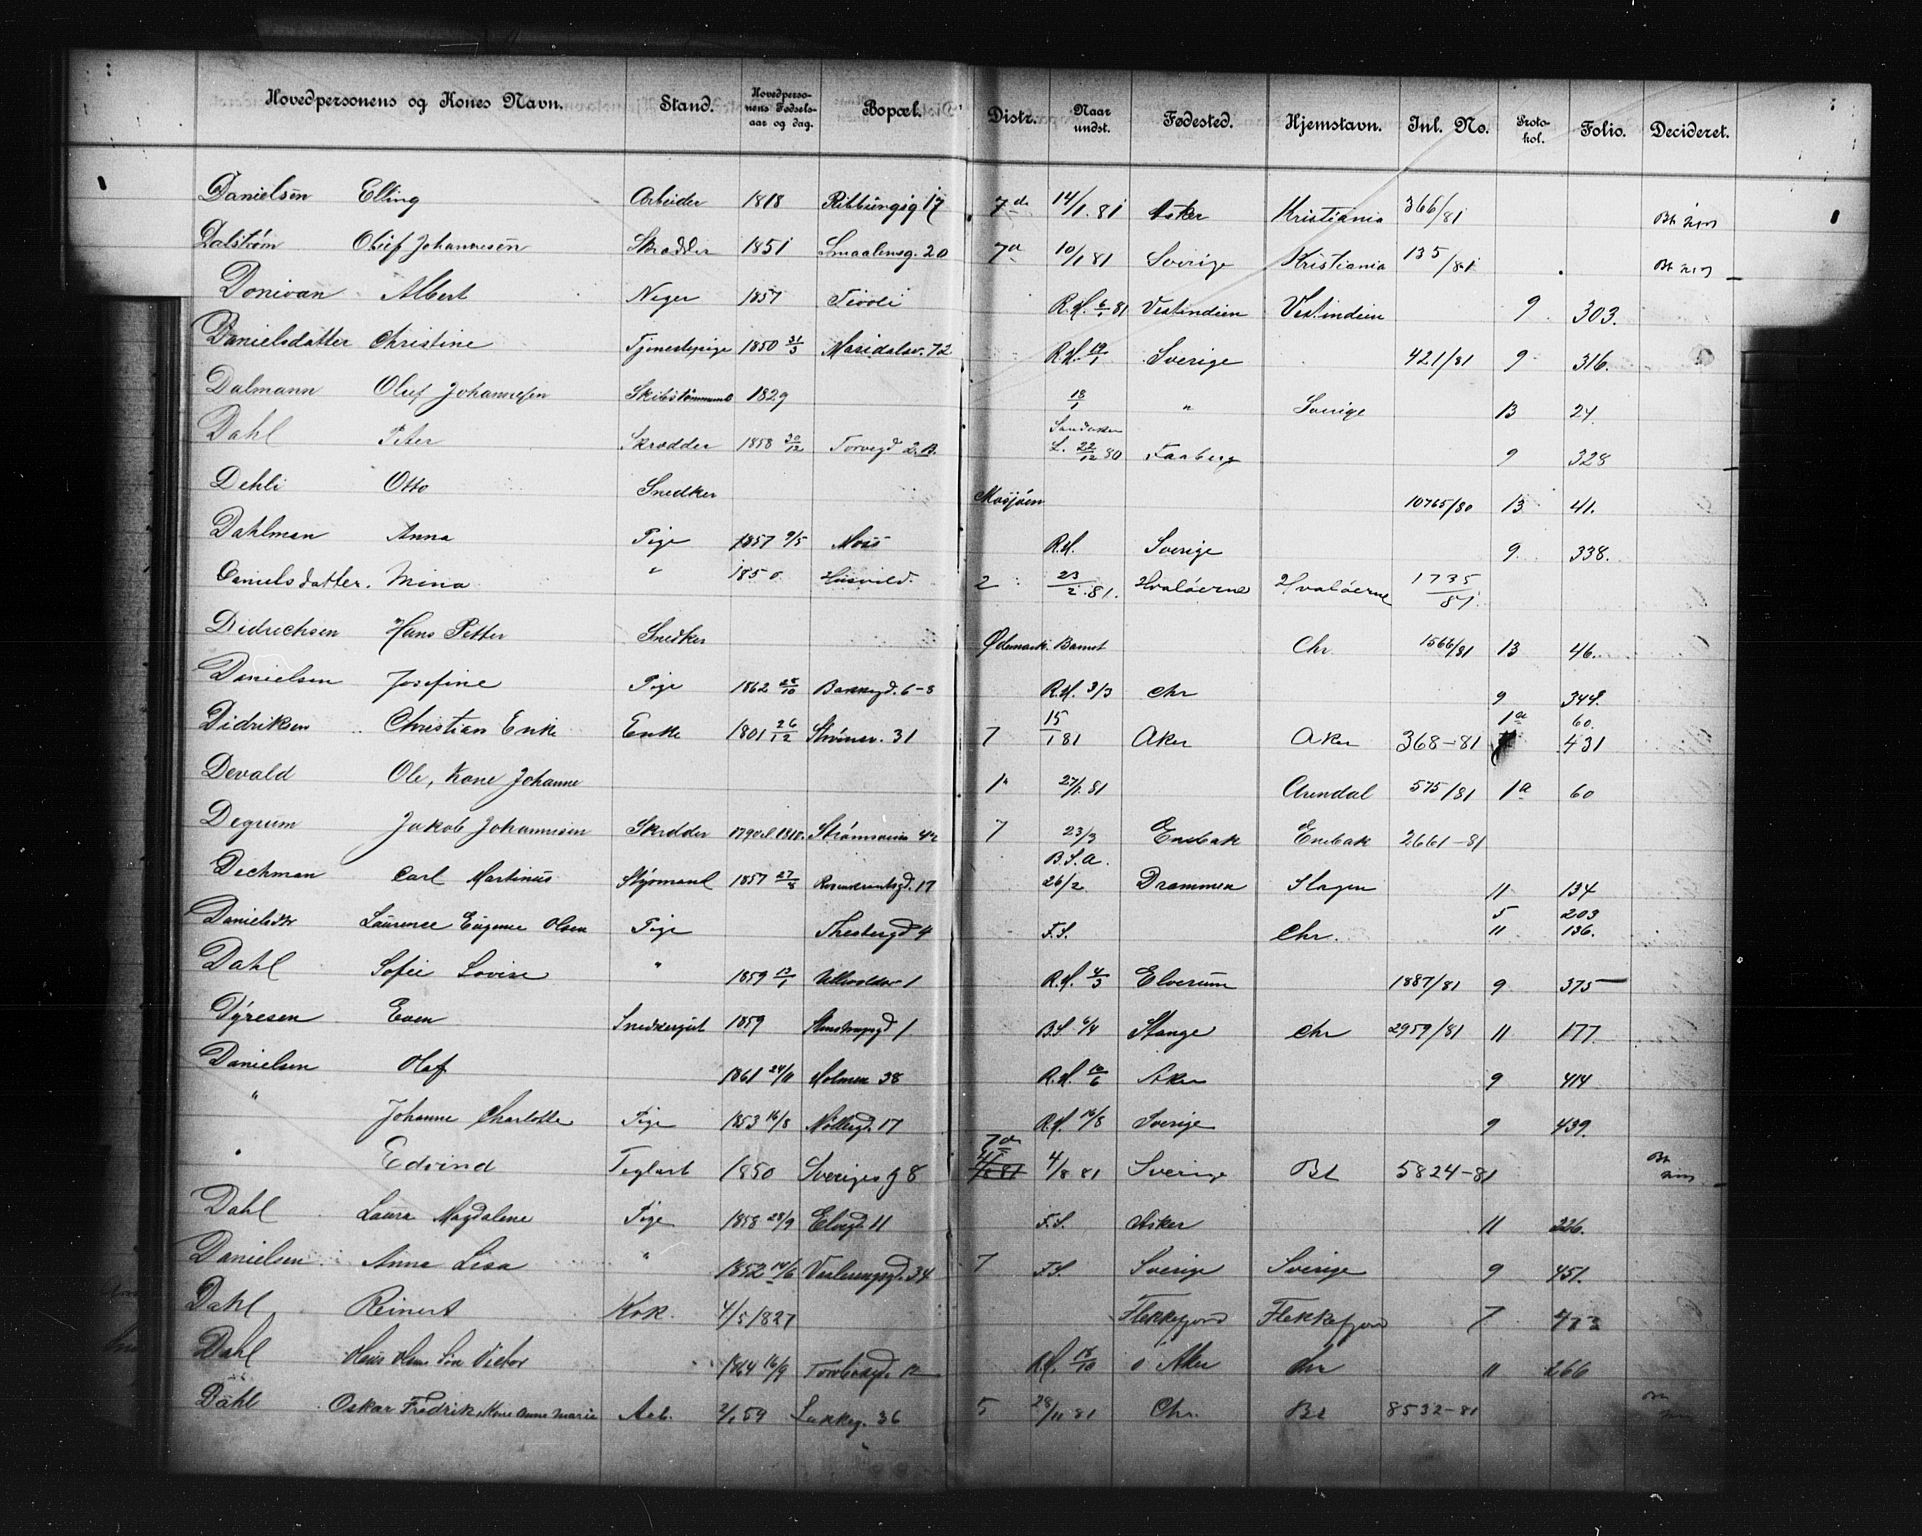 Hovedpersonens og Kones Navn. Stand. Hovedperso-nens Fødsels-aar og dag. Bopæl. Distr. Naar undst. Fødested. Hjemstavn. Jnl. No. Proto-kol. Folio. Decideret.
Danielsen Elling Arbeider 1818 Ribbungsg 17 7d 14/1.81 Asker Kristiania 366/81
Dalstrøm Oluf Johannesen Skrædder 1851 Smaalensg. 20 7a 10/1 81 Sverige Kristiania 135/81
Donivan Albert Neger 1857 Tivoli R.H. 6/1 81 Vestindien Vestindien 9 303.
Danielsdatter Christine Tjenestepige 1850 31/3 Maridalsv. 72 R.H. 19/1 Sverige 421/81 9 316.
Dalmann Oluf Johannesen Skibstømmermd 1829 18/1 " Sverige 13 24.
Dahl Peter Skrædder 1858 30/12 Torvegd 2.B. Sandaker L. 22/12 80 Faaberg 9 328
Dehli Otto Snedker Mosjøen 10765/80 13 41.
Dahlman Anna Pige 1857 9/5 Moss R.H. Sverige 9. 338.
Danielsdatter. Mina " 1850 Husvild. 2 23/2.81. Hvaløerne Hvaløerne 1735/81.
Didrichsen Hans Petter Snedker Ødemark. Bamst Chr 1566/81 13 46.
Danielsen Josefine Pige 1862 28/10 6-8 R.H. 3/3 Chr 9 344.
Didriksen Christian Enke Enke 1801 26/12 Strømsv. 31 7 15/1 81 Aker Aker 368-81 1a 60. 431
Devald Ole, Kone Johanne 1a 27/1.81 Arendal 575/81 1a 60
Degrum Jakob Johannesen Skrædder 1790 el 1810. Strømsveien 42 7 23/3 Enebak Enebak 2661-81
Dichman Carl Martinus Styrmand 1857 27/8 Rosenkrantsgd. 17 B.S.a. 26/2 Drammen Slagen 11 134
Danielsdtr Laurence Eugenie Olsen Pige Thesbergd 4 F.S. Chr. 5 203 11 136.
Dahl Sofie Lovise " 1859 13/1 Ullevoldsv 1 R.H. 4/3 Elverum 1887/81 9 375
Dyresen Even Snedkersvt 1859 1 B.S 6/4 Stange Chr 2959/81 11 177
Danielsen Olaf 1861 24/11 Holmen 38 R.H. 10/6 Aker 9 414
" Johanne Charlotte Pige 1853 16/8 Møllergd. 17 R.H. 16/8 Sverige 9 439.
" Edvind Teglarb 1850 Sveriges g 8 7d 4/8 81 4/8 81 Sverige Bt 5824-81
Dahl Laura Magdalene Pige 1858 28/9 Elvegd. 11 F.S. Asker 11 226.
Danielsen Anna Lisa " 1852 14/6 34 7 F.S. Sverige Sverige 9 451.
Dahl Reinert Kok. 4/5 1827 Flekkefjord Flekkefjord 7 473
Dahl Hans Olsen Søn Victor 1864 16/9 Torvbakgd. 12 R.H. 18/10 Ø Aker Chr 11 266
Dahl Oskar Fredrik, Kone Anne Marie Arb. 2/1 59 Lakkeg. 36 5 28/11 81 Chr. Bt 8532-81